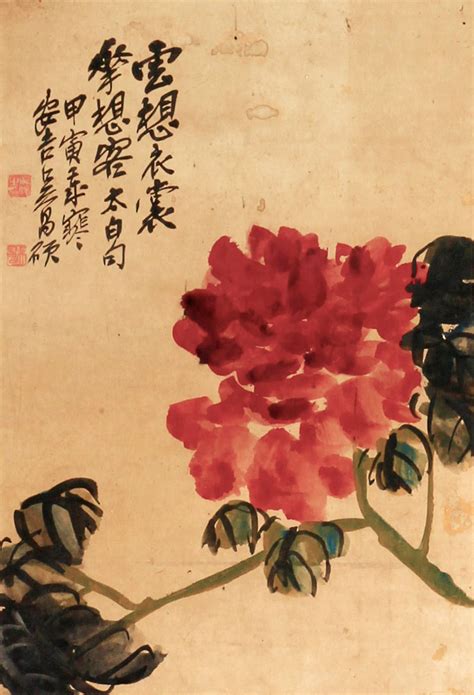 雲想衣裳
華想容太白句
甲寅歲寒
安吉吳昌碩